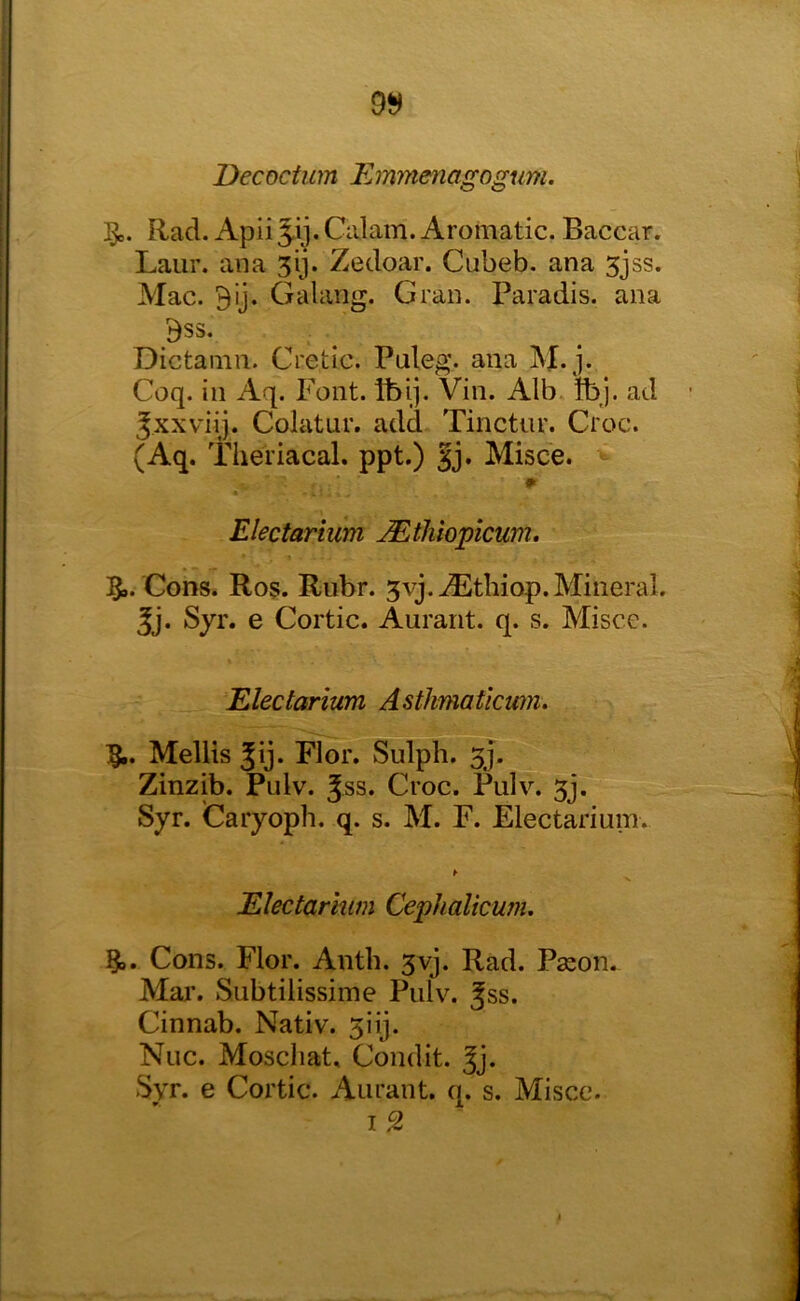 99
Decoctum Emmenagogum.
℞. Rad. Apii ℥ij. Calam. Aromatic. Baccar.
Laur. ana ʒij. Zedoar. Cubeb. ana ʒjss.
Mac. ℈ij. Galang. Gran. Paradis. ana
℈ss.
Dictamn. Cretic. Puleg. ana M. j.
Coq. in Aq. Font. ℔ij. Vin. Alb ℔j. ad
℥xxviij. Colatur. add Tinctur. Croc.
(Aq. Theriacal. ppt.) ℥j. Misce.
Electarium Æthiopicum.
℞. Cons. Ros. Rubr. ʒvj. Æthiop. Mineral.
℥j. Syr. e Cortic. Aurant. q. s. Misce.
Electarium Asthmaticum.
℞. Mellis ℥ij. Flor. Sulph. ʒj.
Zinzib. Pulv. ℥ss. Croc. Pulv. ʒj.
Syr. Caryoph. q. s. M. F. Electarium.
Electarium Cephalicum.
℞. Cons. Flor. Anth. ʒvj. Rad. Pæon.
Mar. Subtilissime Pulv. ℥ss.
Cinnab. Nativ. ʒiij.
Nuc. Moschat. Condit. ℥j.
Syr. e Cortic. Aurant. q. s. Misce.
I 2